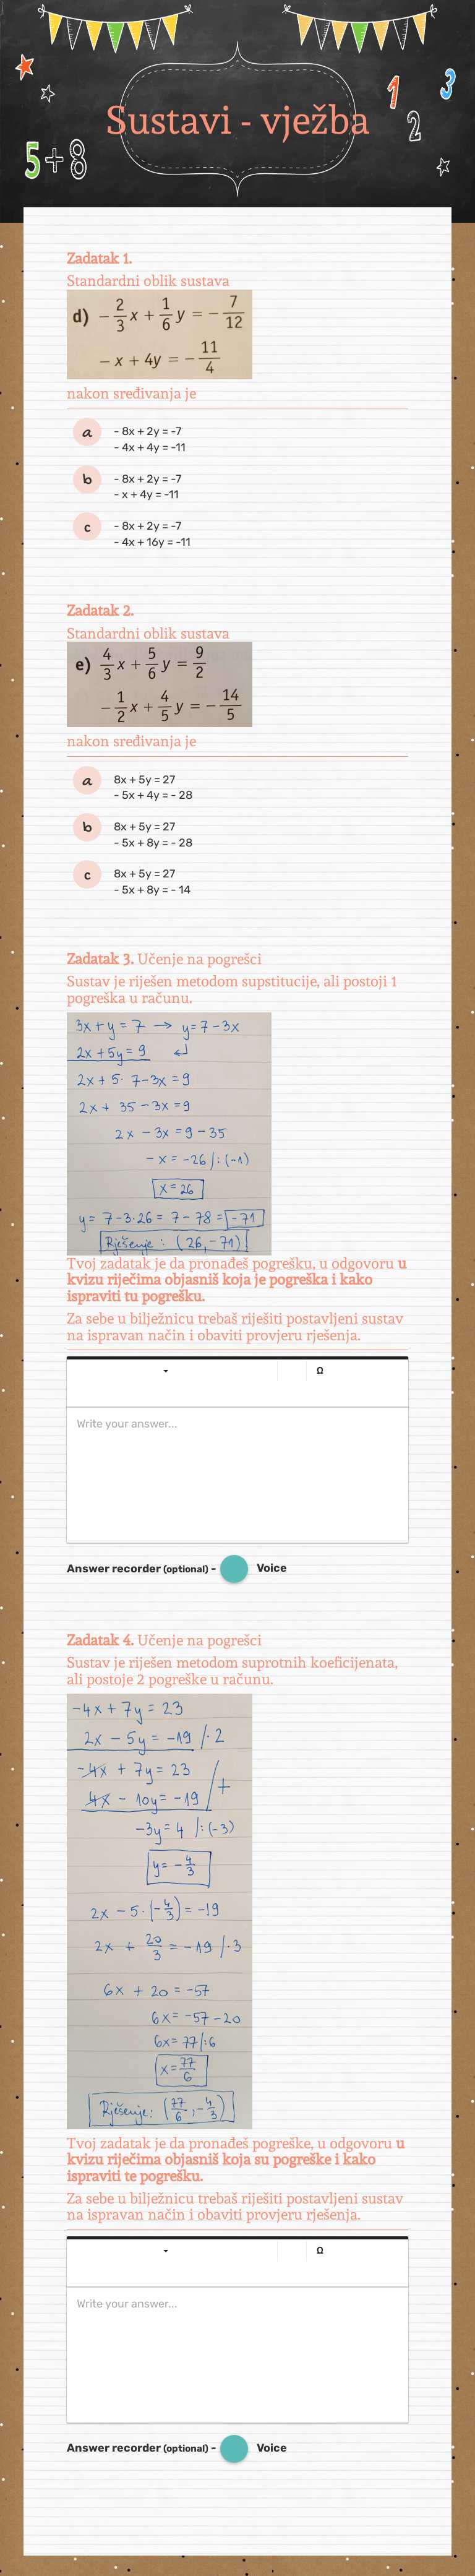 Sustavi - vježba
5+8
1
2
3
Zadatak 1.
Standardni oblik sustava
d) -2/3 x + 1/6 y = -7/12
- x + 4y = -11/4
nakon sređivanja je
a
- 8x + 2y = -7
- 4x + 4y = -11
b
- 8x + 2y = -7
- x + 4y = -11
c
- 8x + 2y = -7
- 4x + 16y = -11
Zadatak 2.
Standardni oblik sustava
e) 4/3 x + 5/6 y = 9/2
-1/2 x + 4/5 y = -14/5
nakon sređivanja je
a
8x + 5y = 27
- 5x + 4y = - 28
b
8x + 5y = 27
- 5x + 8y = - 28
c
8x + 5y = 27
- 5x + 8y = - 14
Zadatak 3. Učenje na pogrešci
Sustav je riješen metodom supstitucije, ali postoji 1
pogreška u računu.
3x + y = 7 → y = 7 - 3x
2x + 5y = 9 ↲
2x + 5· 7 - 3x = 9
2x + 35 - 3x = 9
2x - 3x = 9 - 35
- x = -26 /: (-1)
x = 26
y = 7 - 3·26 = 7 - 78 = -71
Rješenje : (26, -71)
Tvoj zadatak je da pronađeš pogrešku, u odgovoru u
kvizu riječima objasniš koja je pogreška i kako
ispraviti tu pogrešku.
Za sebe u bilježnicu trebaš riješiti postavljeni sustav
na ispravan način i obaviti provjeru rješenja.
Ω
Write your answer...
Answer recorder (optional) - Voice
Zadatak 4. Učenje na pogrešci
Sustav je riješen metodom suprotnih koeficijenata,
ali postoje 2 pogreške u računu.
-4x + 7y = 23
2x - 5y = -19 /· 2
-4x + 7y = 23
4x - 10y = -19 / +
-3y = 4 /: (-3)
y = -4/3
2x - 5· (-4/3) = -19
2x + 20/3 = -19 /· 3
6x + 20 = -57
6x = -57 - 20
6x = 77 /: 6
x = 77/6
Rješenje: (77/6, -4/3)
Tvoj zadatak je da pronađeš pogreške, u odgovoru u
kvizu riječima objasniš koja su pogreške i kako
ispraviti te pogrešku.
Za sebe u bilježnicu trebaš riješiti postavljeni sustav
na ispravan način i obaviti provjeru rješenja.
Ω
Write your answer...
Answer recorder (optional) - Voice